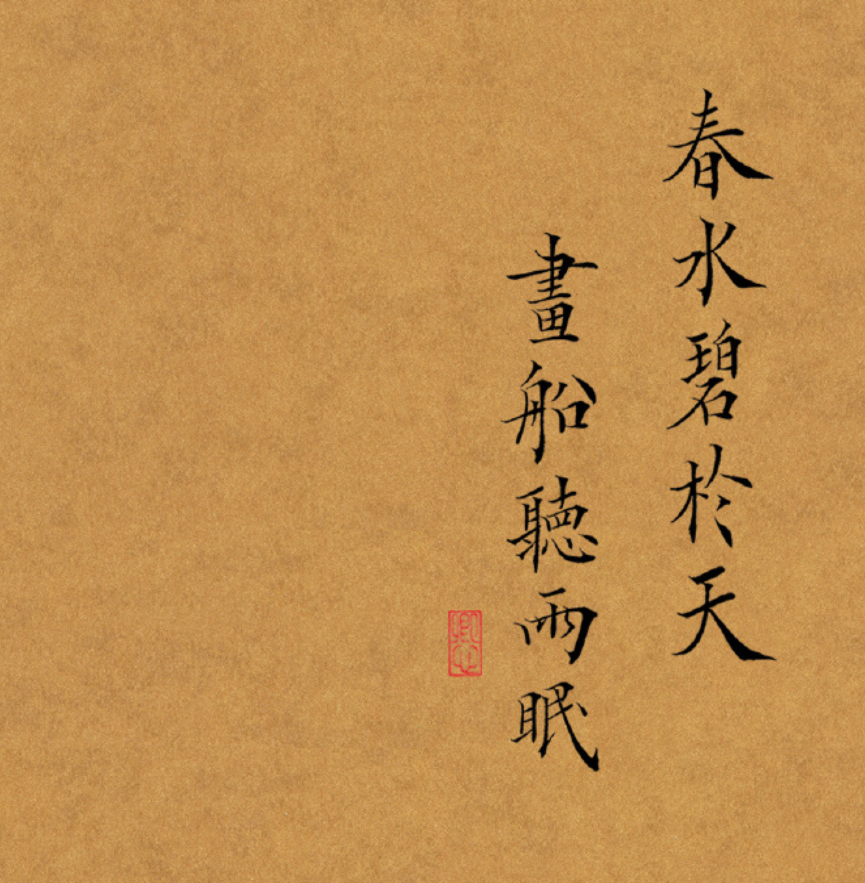 春水碧於天
畫船聽雨眠